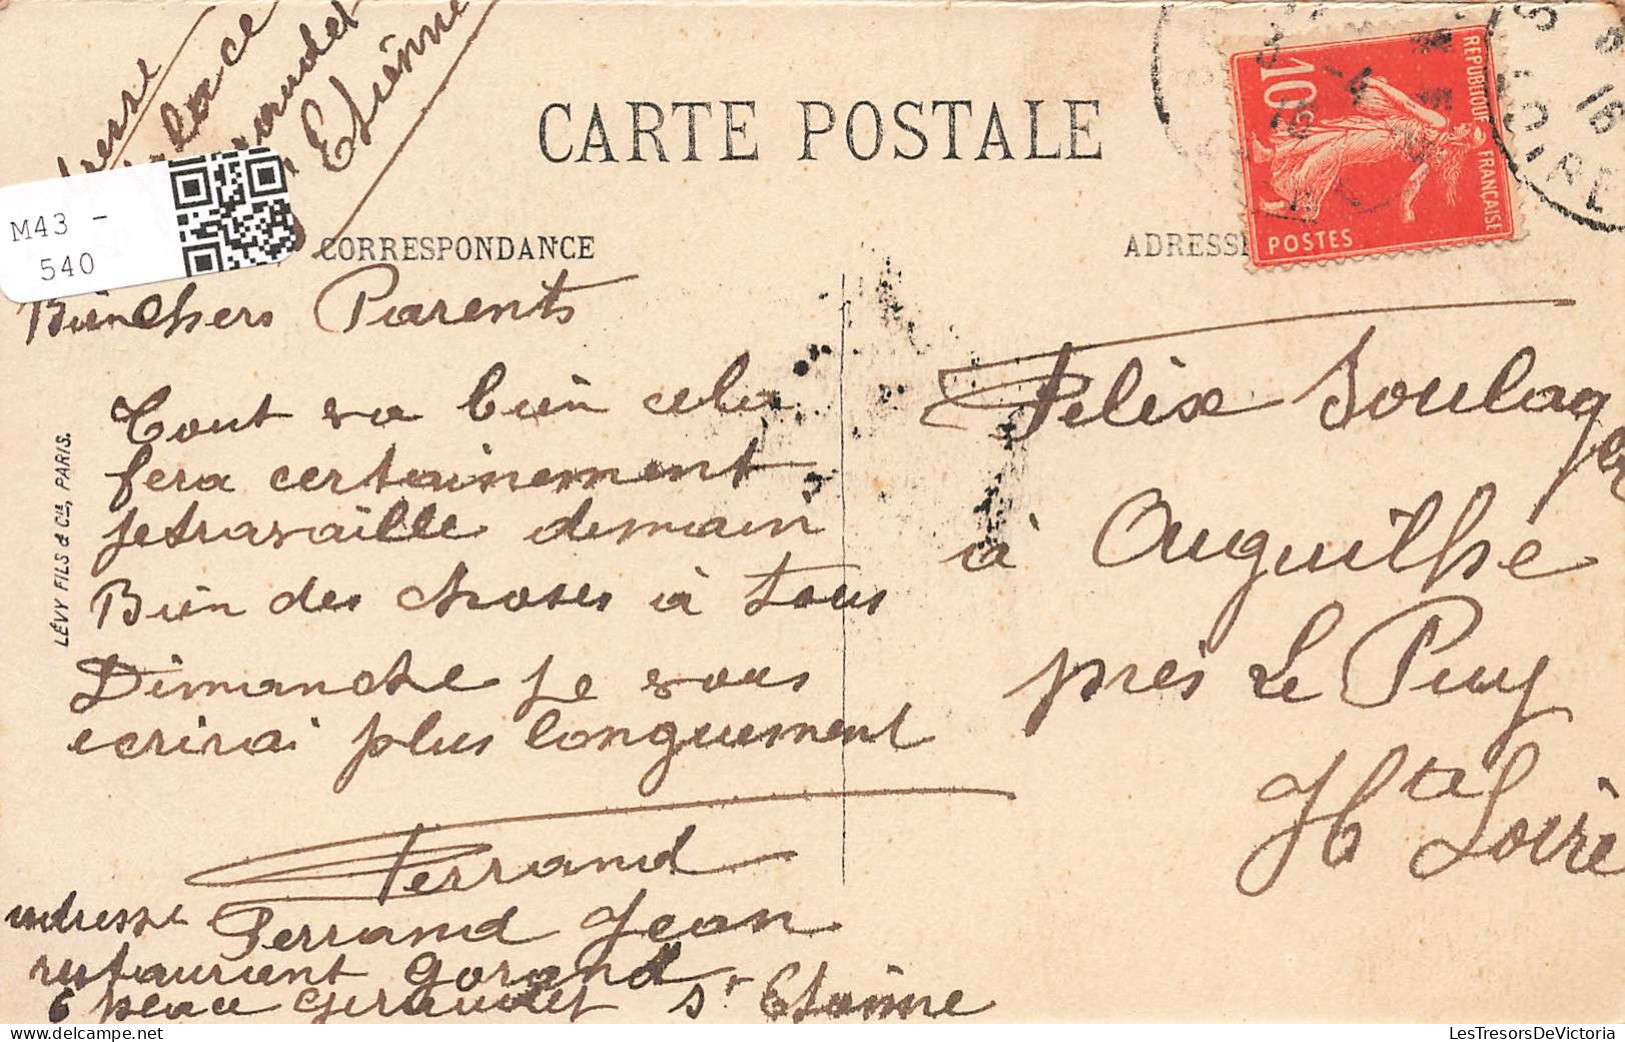 place
St Etienne
CARTE POSTALE
10
REPUBLIQUE FRANÇAISE
POSTES
16
LOIRE
M43 -
540
CORRESPONDANCE
ADRESSE
Bien chers Parents
Tout va bien cela
fera certainement
je travaille demain
Bien des choses à tous
Dimanche je vous
ecrirai plus longuement
Ferrand
adresse Ferrand Jean
restaurant Gorand
6 Geraudet St Etienne
Felix Soulages
à Aiguilhe
près Le Puy
Hte Loire
LÉVY FILS & Cie, PARIS.
LesTresorsDeVictoria.com